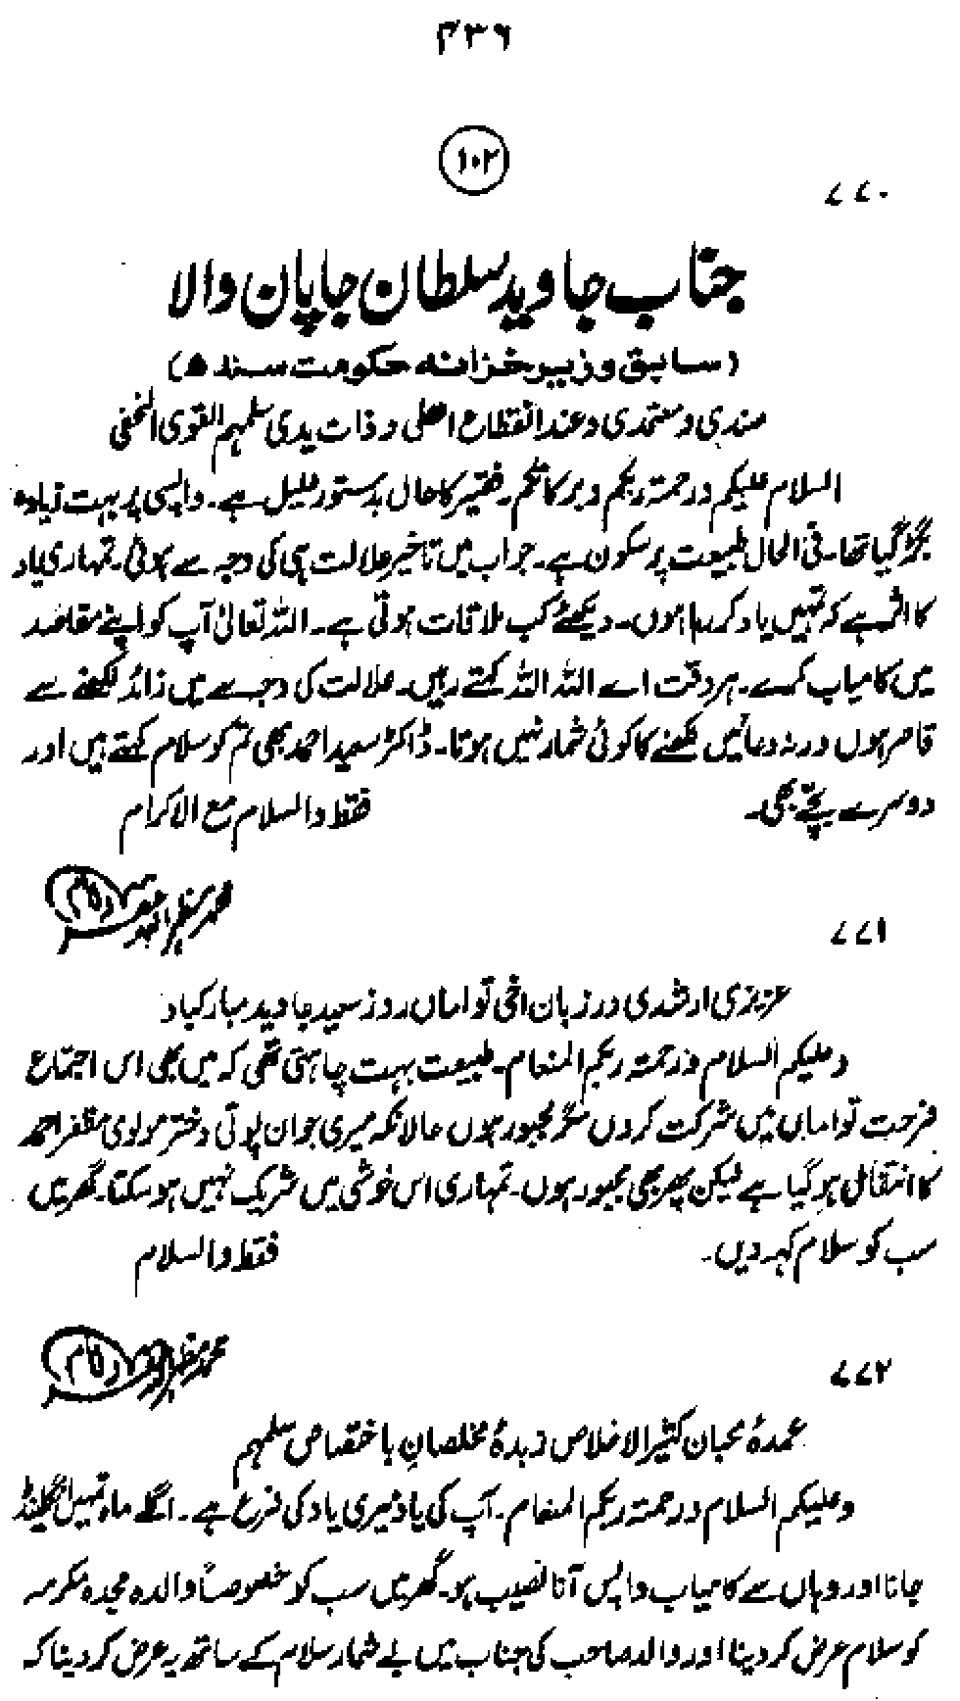 ۴۳۶
۱۰۲
۷۷۰
جناب جاوید سلطان جاپان والا
(سابق وزیر خزانہ حکومت سندھ)
سندی و معتمدی و عند انقطاع اصلی و ذات یدی سلمہم القوی الخفی
السلام علیکم ورحمتہ ربکم وبرکاتکم۔ فقیر کا حال بدستور علیل ہے۔ واپسی پر بہت زیادہ
بگڑ گیا تھا۔ فی الحال طبیعت پر سکون ہے۔ جواب میں تاخیر علالت ہی کی وجہ سے ہوئی۔ تمہاری یاد
کا اثر ہے کہ تمہیں یاد کر رہا ہوں۔ دیکھئے کب ملاقات ہوتی ہے۔ اللہ تعالیٰ آپ کو اپنے مقاصد
میں کامیاب کرے۔ ہر وقت اے اللہ اللہ کہتے رہیں۔ علالت کی وجہ سے میں زائد لکھنے سے
قاصر ہوں ورنہ دعائیں لکھنے کا کوئی شمار نہیں ہوتا۔ ڈاکٹر سعید احمد بھی تم کو سلام کہتے ہیں اور
دوسرے بچے بھی۔ فقط والسلام مع الاکرام
محمد مظہر اللہ
۷۷۱
عزیزی ارشدی در زبان اخی تو اماں روز سعید جاوید مبارکباد
وعلیکم السلام ورحمتہ ربکم المنعام۔ طبیعت بہت چاہتی تھی کہ میں بھی اس اجتماع
فرحت تو اماں میں شرکت کروں مگر مجبور ہوں حالانکہ میری جوان پوتی دختر مولوی مظفر احمد
کا انتقال ہو گیا ہے لیکن پھر بھی مجبور ہوں۔ تمہاری اس خوشی میں شریک نہیں ہو سکتا۔ گھر میں
سب کو سلام کہہ دیں۔ فقط والسلام
محمد مظہر اللہ
۷۷۲
عمدۂ محبان کثیر الاخلاص زبدۂ مخلصانِ با ختصاص سلمہم
وعلیکم السلام ورحمتہ ربکم المنعام۔ آپ کی یاد میری یاد کی فرع ہے۔ اگلے ماہ تمہیں انگلینڈ
جانا اور وہاں سے کامیاب واپس آنا نصیب ہو۔ گھر میں سب کو خصوصاً والدہ مجدہ مکرمہ
کو سلام عرض کر دینا اور والد صاحب کی جناب میں بے شمار سلام کے ساتھ یہ عرض کر دینا کہ